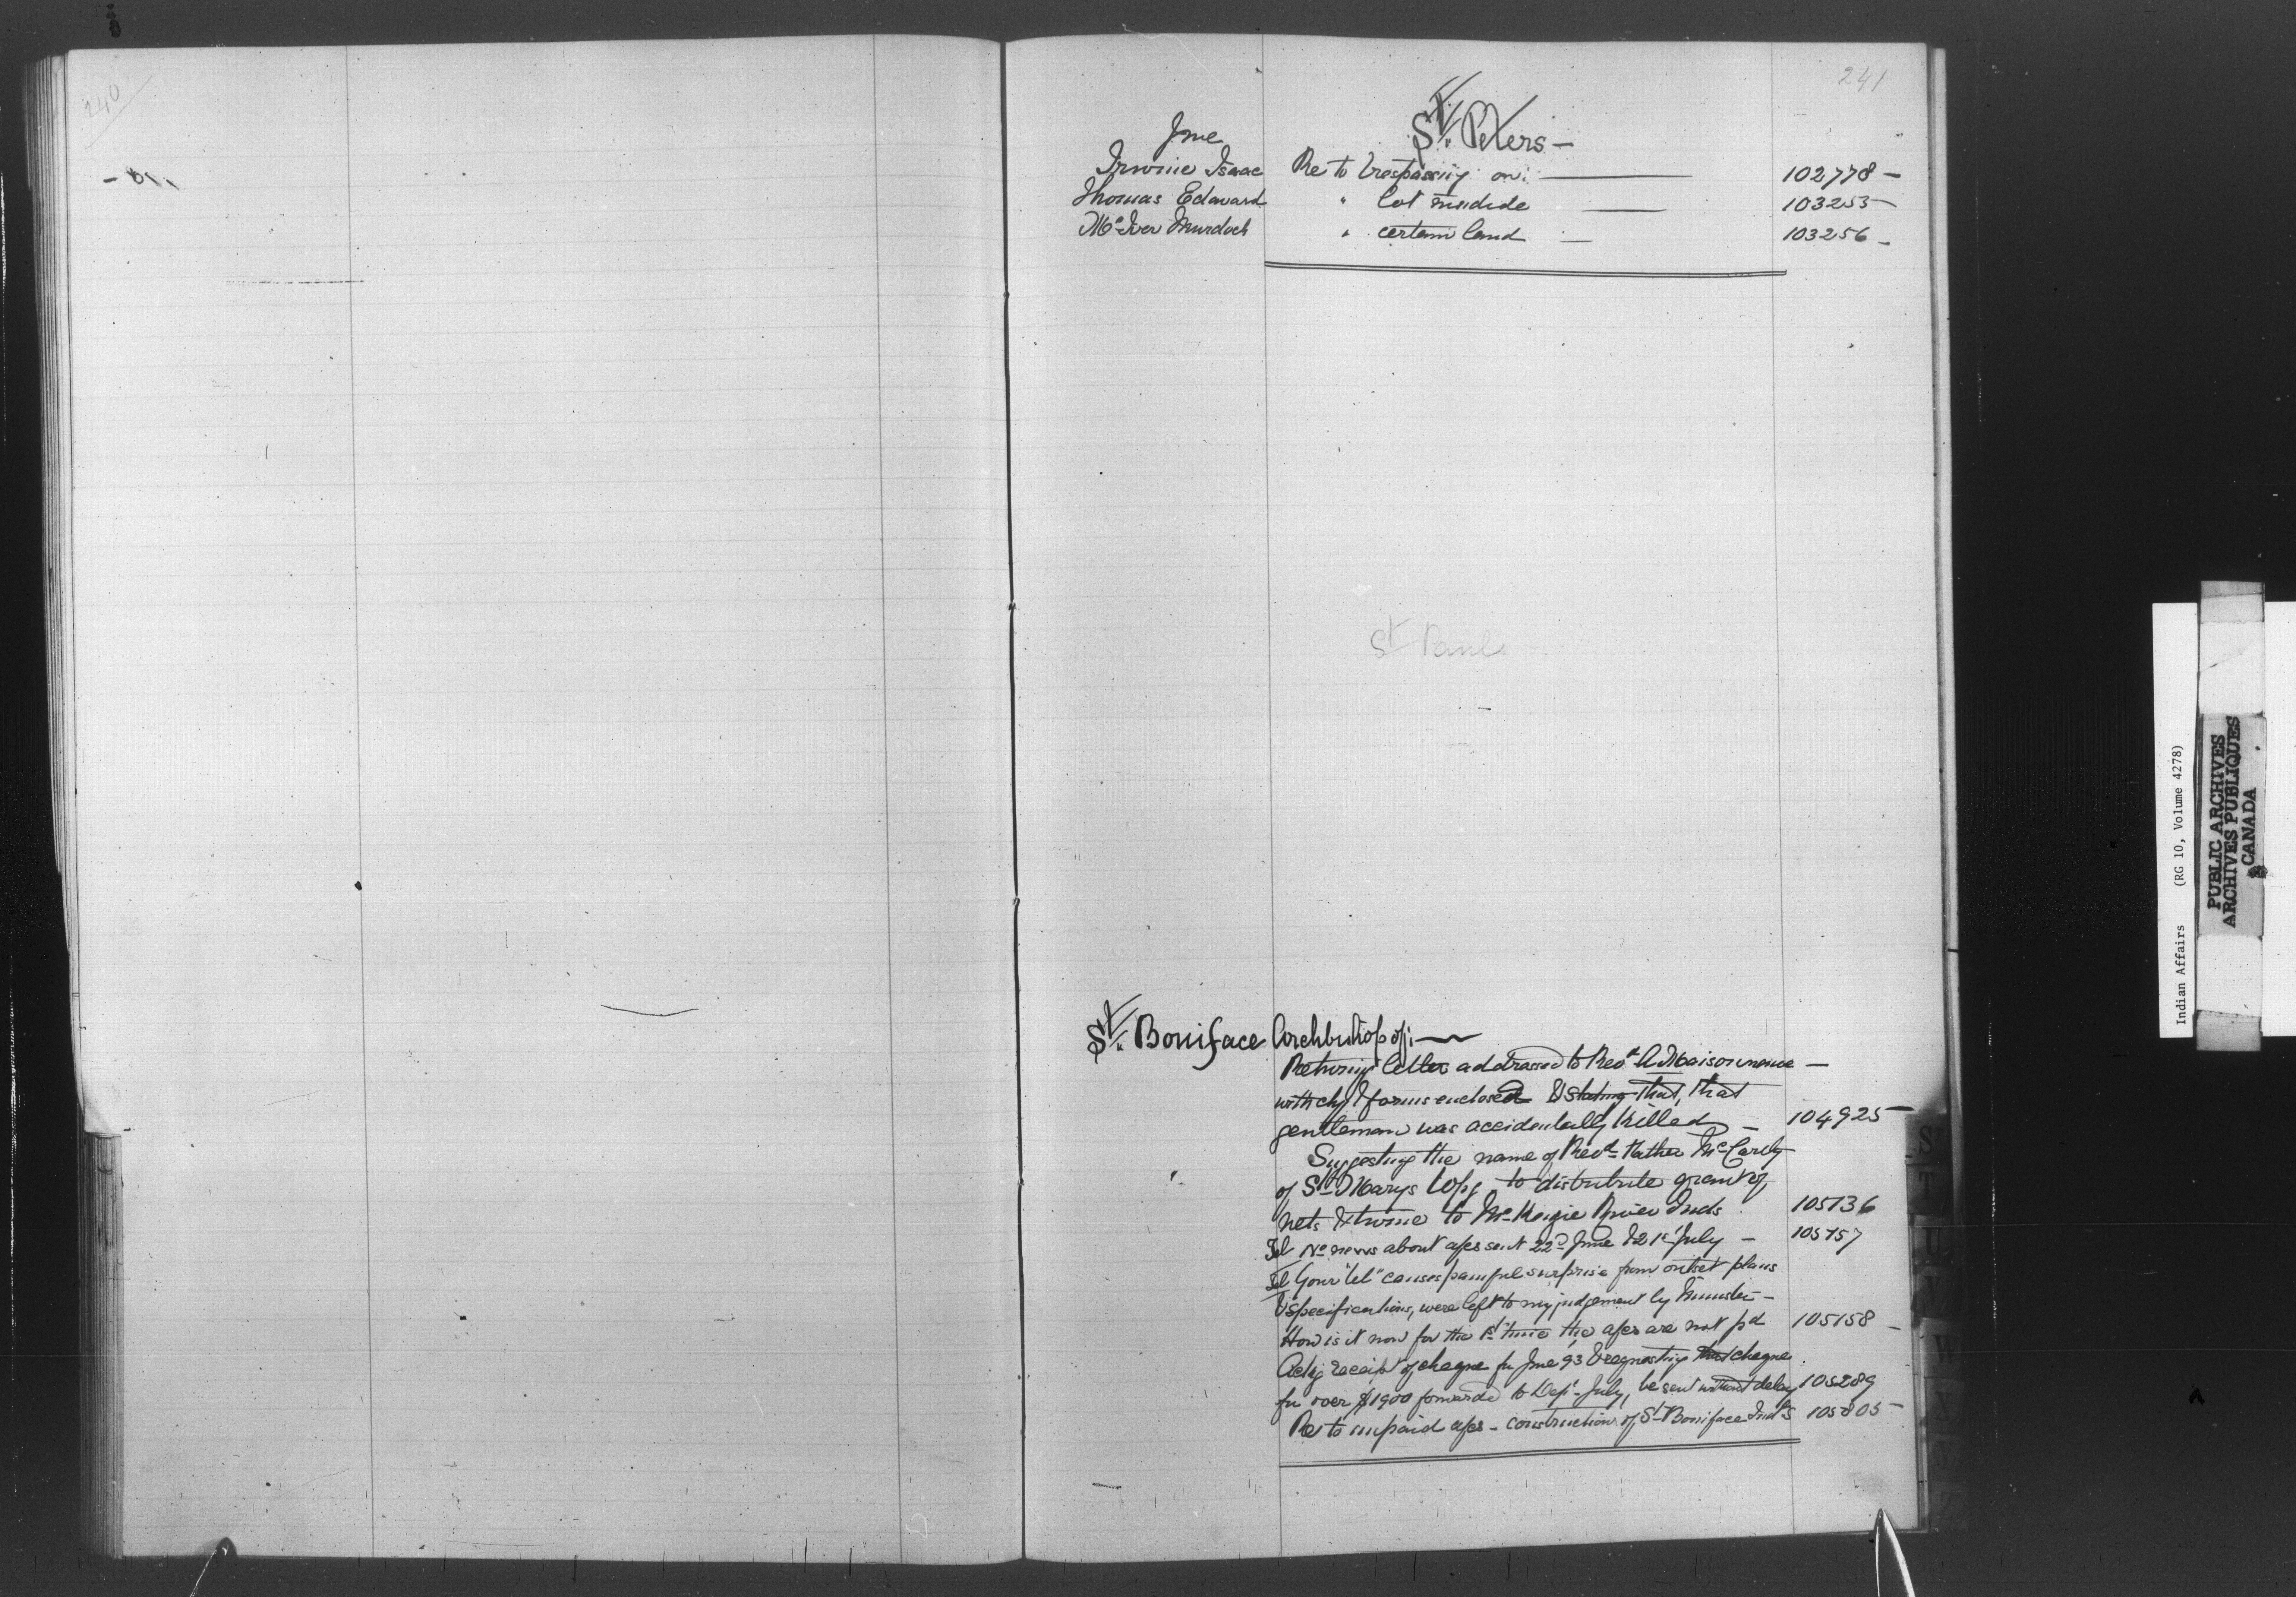 240
241
St. Peters -
June
Irwine Isaac Re to trespassing on: 102778 -
Thomas Edward " lot 103253 -
McIver Murdoch " certain land - 103256 -
St Pauls
St. Boniface Archbishop of: -
Returning letter addressed to Revd. A Maisonneuve -
with chq & forms enclosed & stating that, that
gentleman was accidentally killed - 104925 -
Suggesting the name of Revd. Father McCarthy
of St. Marys to distribute grant of
nets & twine to McKenzie River Inds 105136
Tel No news about a/cs sent 22d June & 21st July - 105157
Tel Your "tel" causes painful surprise from outset plans
& specifications, were left to my judgement by Minister -
How is it now for the 1st time the a/cs are not pd 105158 -
Ackg receipt of cheque fr June 93 & requesting that cheque
fr over $1900 forwarded to Dept. July, be sent without delay 105289
Re to unpaid a/cs - construction of St. Boniface Ind S 105805 -
S
T
U
V
W
X
Y
Z
Indian Affairs (RG 10, Volume 4278)
PUBLIC ARCHIVES
ARCHIVES PUBLIQUES
CANADA